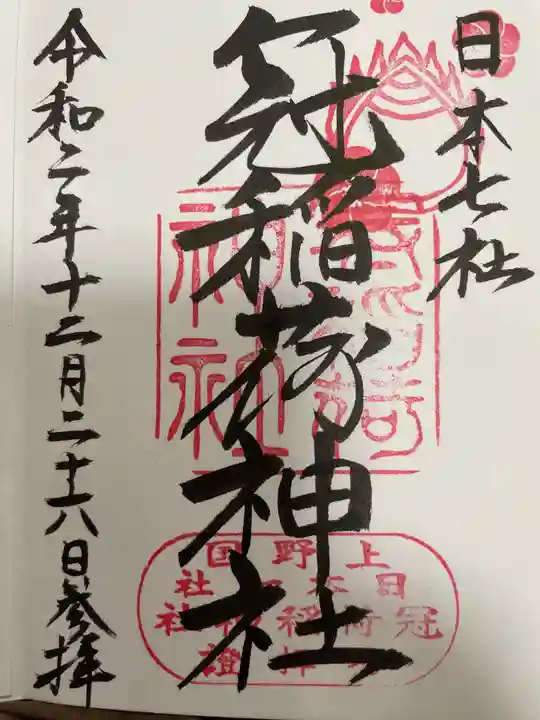 日本七社
冠稲荷神社
令和二年十二月二十六日参拝
上野国
日本七社
冠稲荷神社
参拝證